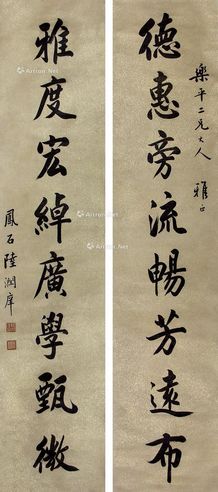 樂平二兄大人 雅正
德惠旁流暢芳遠布
雅度宏綽廣學甄微
鳳石陸潤庠